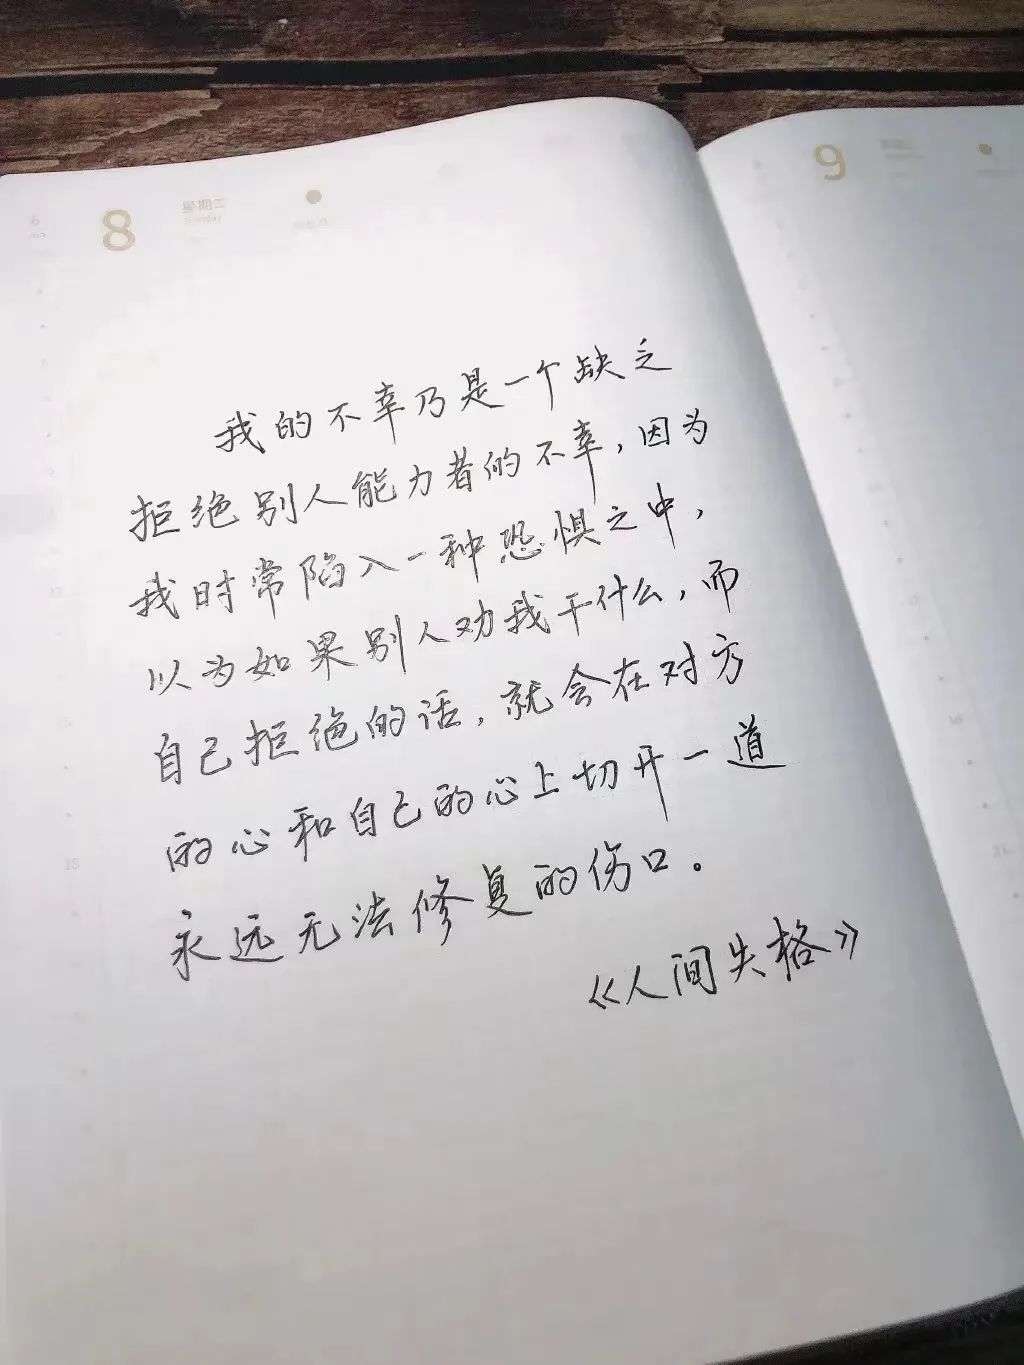 8
星期二
9
我的不幸乃是一个缺乏
拒绝别人能力者的不幸，因为
我时常陷入一种恐惧之中，
以为如果别人劝我干什么，而
自己拒绝的话，就会在对方
的心和自己的心上切开一道
永远无法修复的伤口。
《人间失格》